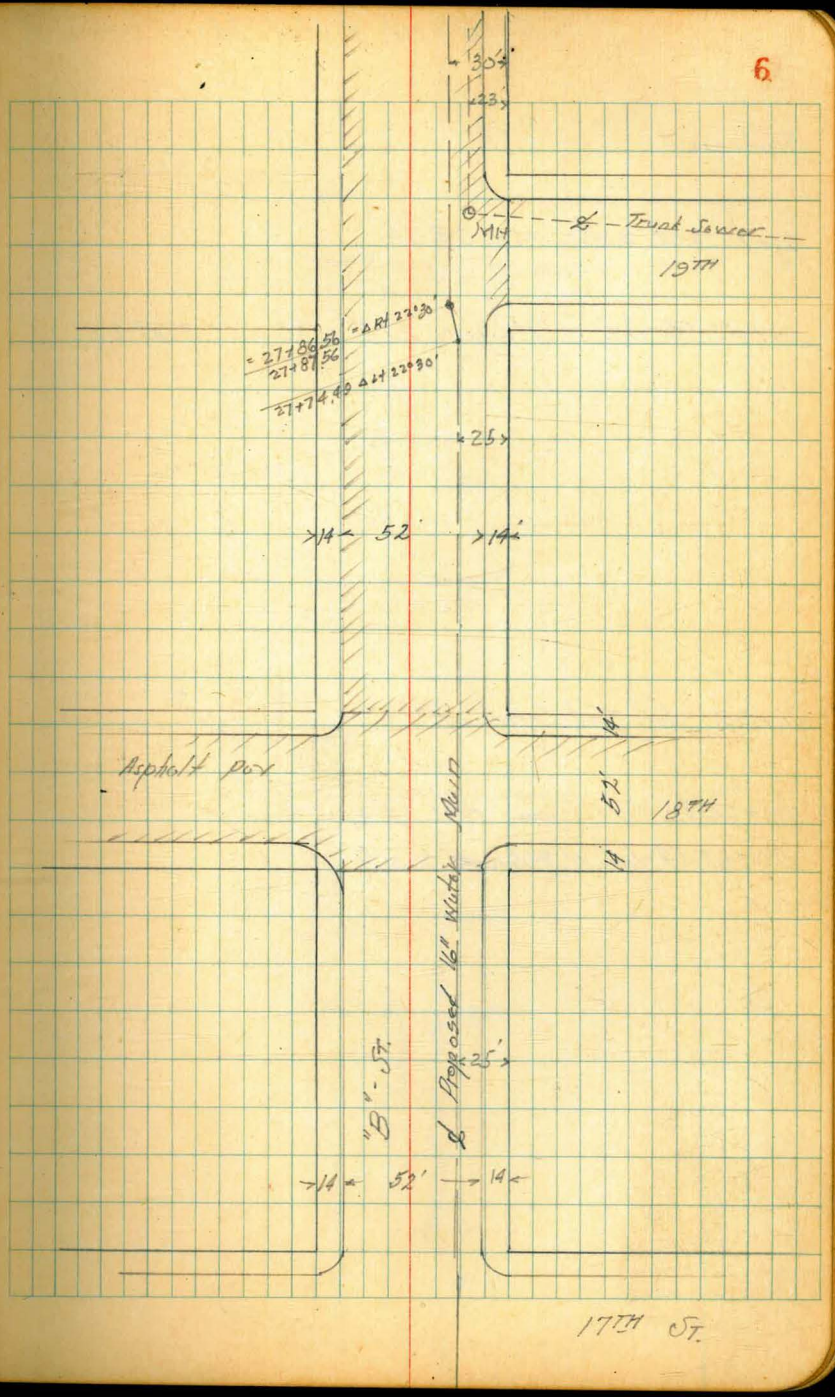 6
30'
23'
MH
℄ Trunk Sewer
19TH
= 27+86.56 = Δ Rt 22°30'
27+87.56
27+74.49 Δ Lt 22°30'
25
14 52' 14'
14'
Asphalt pav
52'
18TH
14
℄ Proposed 16" Water Main
25'
"B" - ST.
14 52' 14
17TH ST.